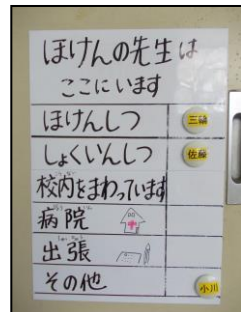 ほけんの先生は
ここにいます
ほけんしつ
しょくいんしつ 佐藤
校内をまわっています
病院
出張
その他 小川